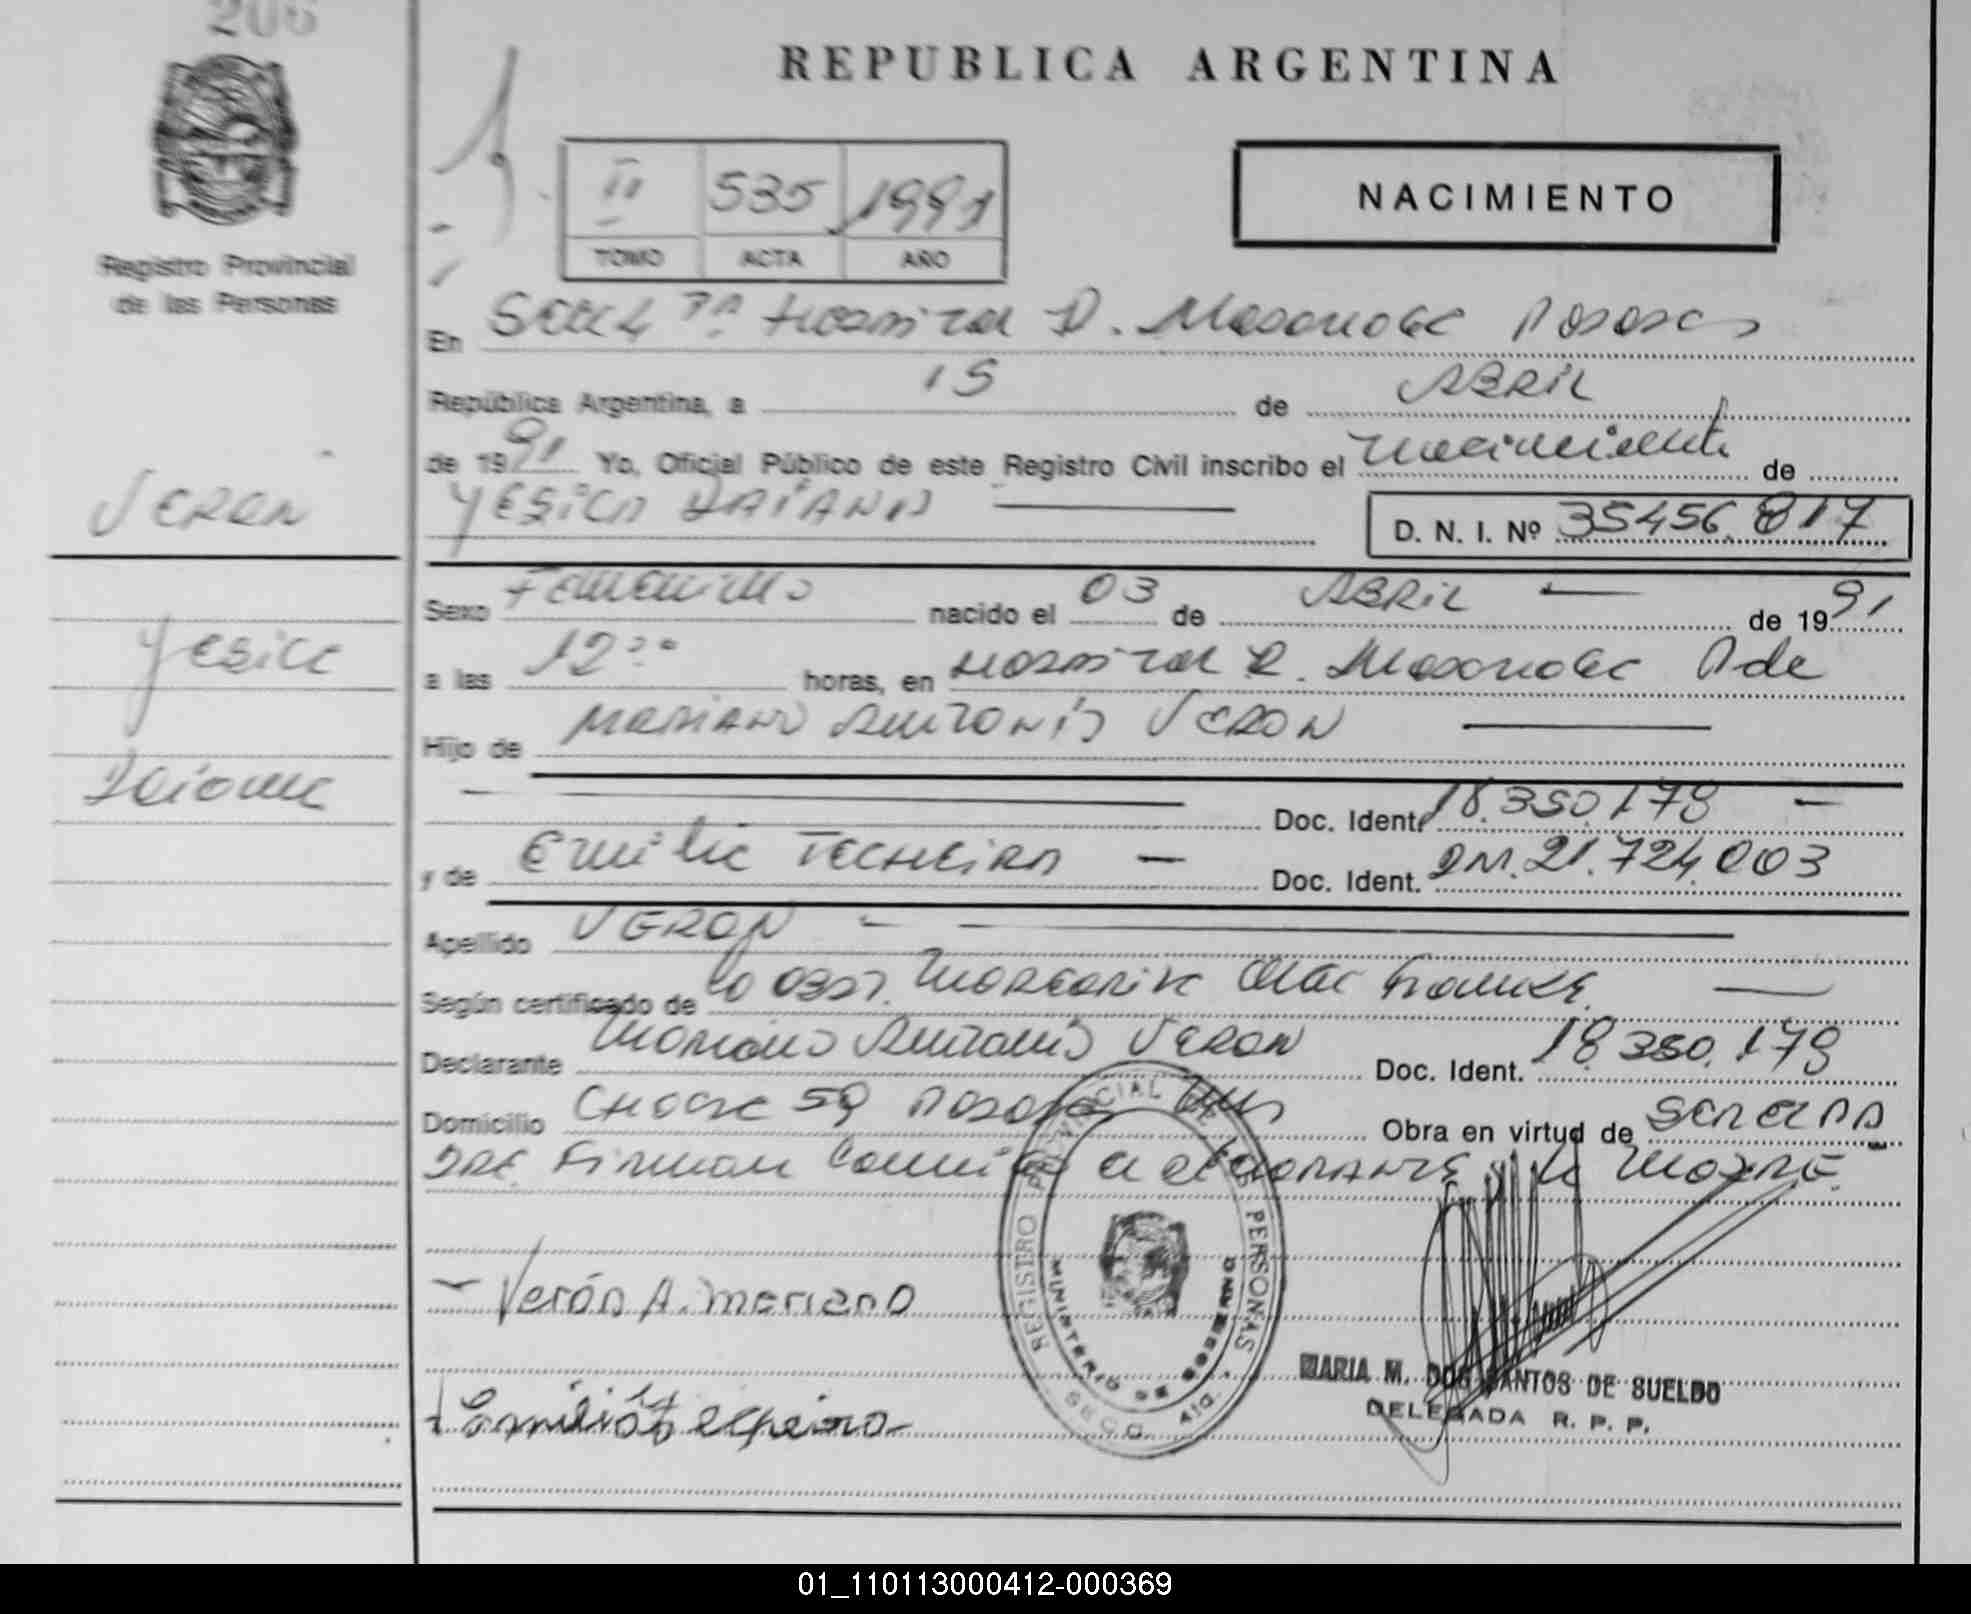 206
REPUBLICA ARGENTINA
NACIMIENTO
II 535 1991
TOMO ACTA AÑO
Registro Provincial
de las Personas
En Secc 7ª Hospital D. Posadas
República Argentina, a 15 de ABRIL
de 1991 Yo, Oficial Público de este Registro Civil inscribo el nacimiento de
YESICA DAIANA
D. N. I. Nº 35456.817
VERON
Yesica
Daiana
Sexo Femenino nacido el 03 de ABRIL de 1991
a las 12 horas, en Hospital R. Pdas
Hijo de MARIANO ANTONIO VERON
Doc. Ident. 18.350.178
y de Emilia TECHEIRA Doc. Ident. DNI. 21.724.003
Apellido VERON
Según certificado de
Declarante Mariano Antonio VERON Doc. Ident. 18.350.178
Domicilio 59 Posadas Mns Obra en virtud de
Firman el declarante y la MADRE
Verón A. mariano
Emilia Techeira
REGISTRO PROVINCIAL DE LAS PERSONAS
MINISTERIO DE GOBIERNO
MARIA M. DOS SANTOS DE SUELDO
DELEGADA R. P. P.
01_110113000412-000369